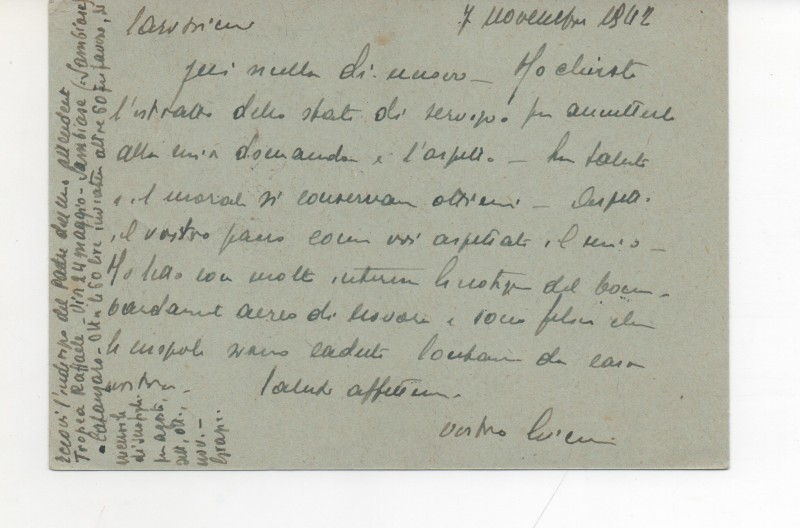 Carissimi
7 novembre 1942
qui nulla di nuovo - Ho chiesto
l'estratto dello stato di servizio per annetterlo
alla mia domanda e l'aspetto - La salute
e il morale si conservan ottimi - Aspetto
il vostro pacco come voi aspettate il mio -
Ho letto con molto interesse le notizie del bom-
bardamento aereo di Novara e sono felice che
le
siano cadute lontane da casa
vostra. Saluti affettuosi.
vostro
Eccovi l'indirizzo del Padre del mio attendente
Tropea Raffaele - Via 24 maggio - Sambiase (Sambiase)
- Catanzaro - Oltre le 60 lire inviate altre 60 per favore, le
mensili
per agosto,
sett., ott.,
nov. -
Grazie.